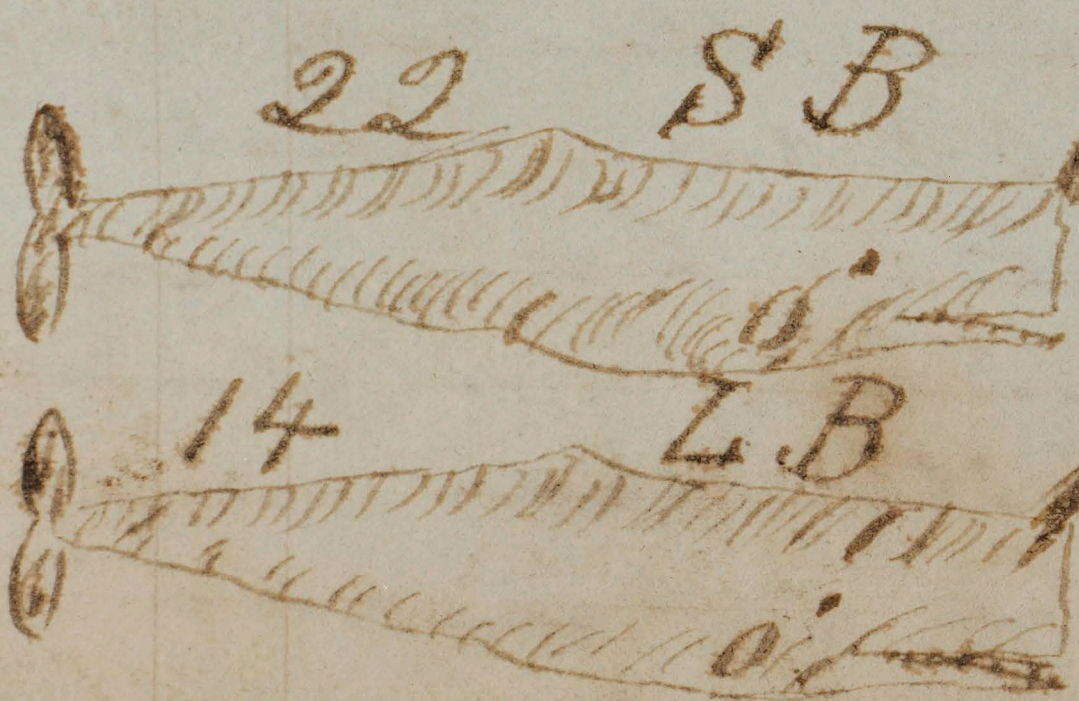 22 S B
14 L B